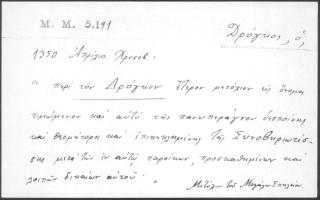 Μ. Μ. 5.191
Δρόγκος, ὁ,
1350 Ἀπρίλιο. Χρυσόβ.
"περὶ τὸν Δρόγκον ἕτερον μετόχιον εἰς ὄνομα
τιμώμενον καὶ αὐτὸ τῆς πανυπεράγνου δεσποίνης
καὶ θεομήτορος καὶ ἐπικεκλημένης τῆς
μετὰ τῶν ἐν αὐτῷ παροίκων, προσκαθημένων καὶ
λοιπῶν δικαίων αὐτοῦ"
τοῦ Μεγάλου Σπηλαίου